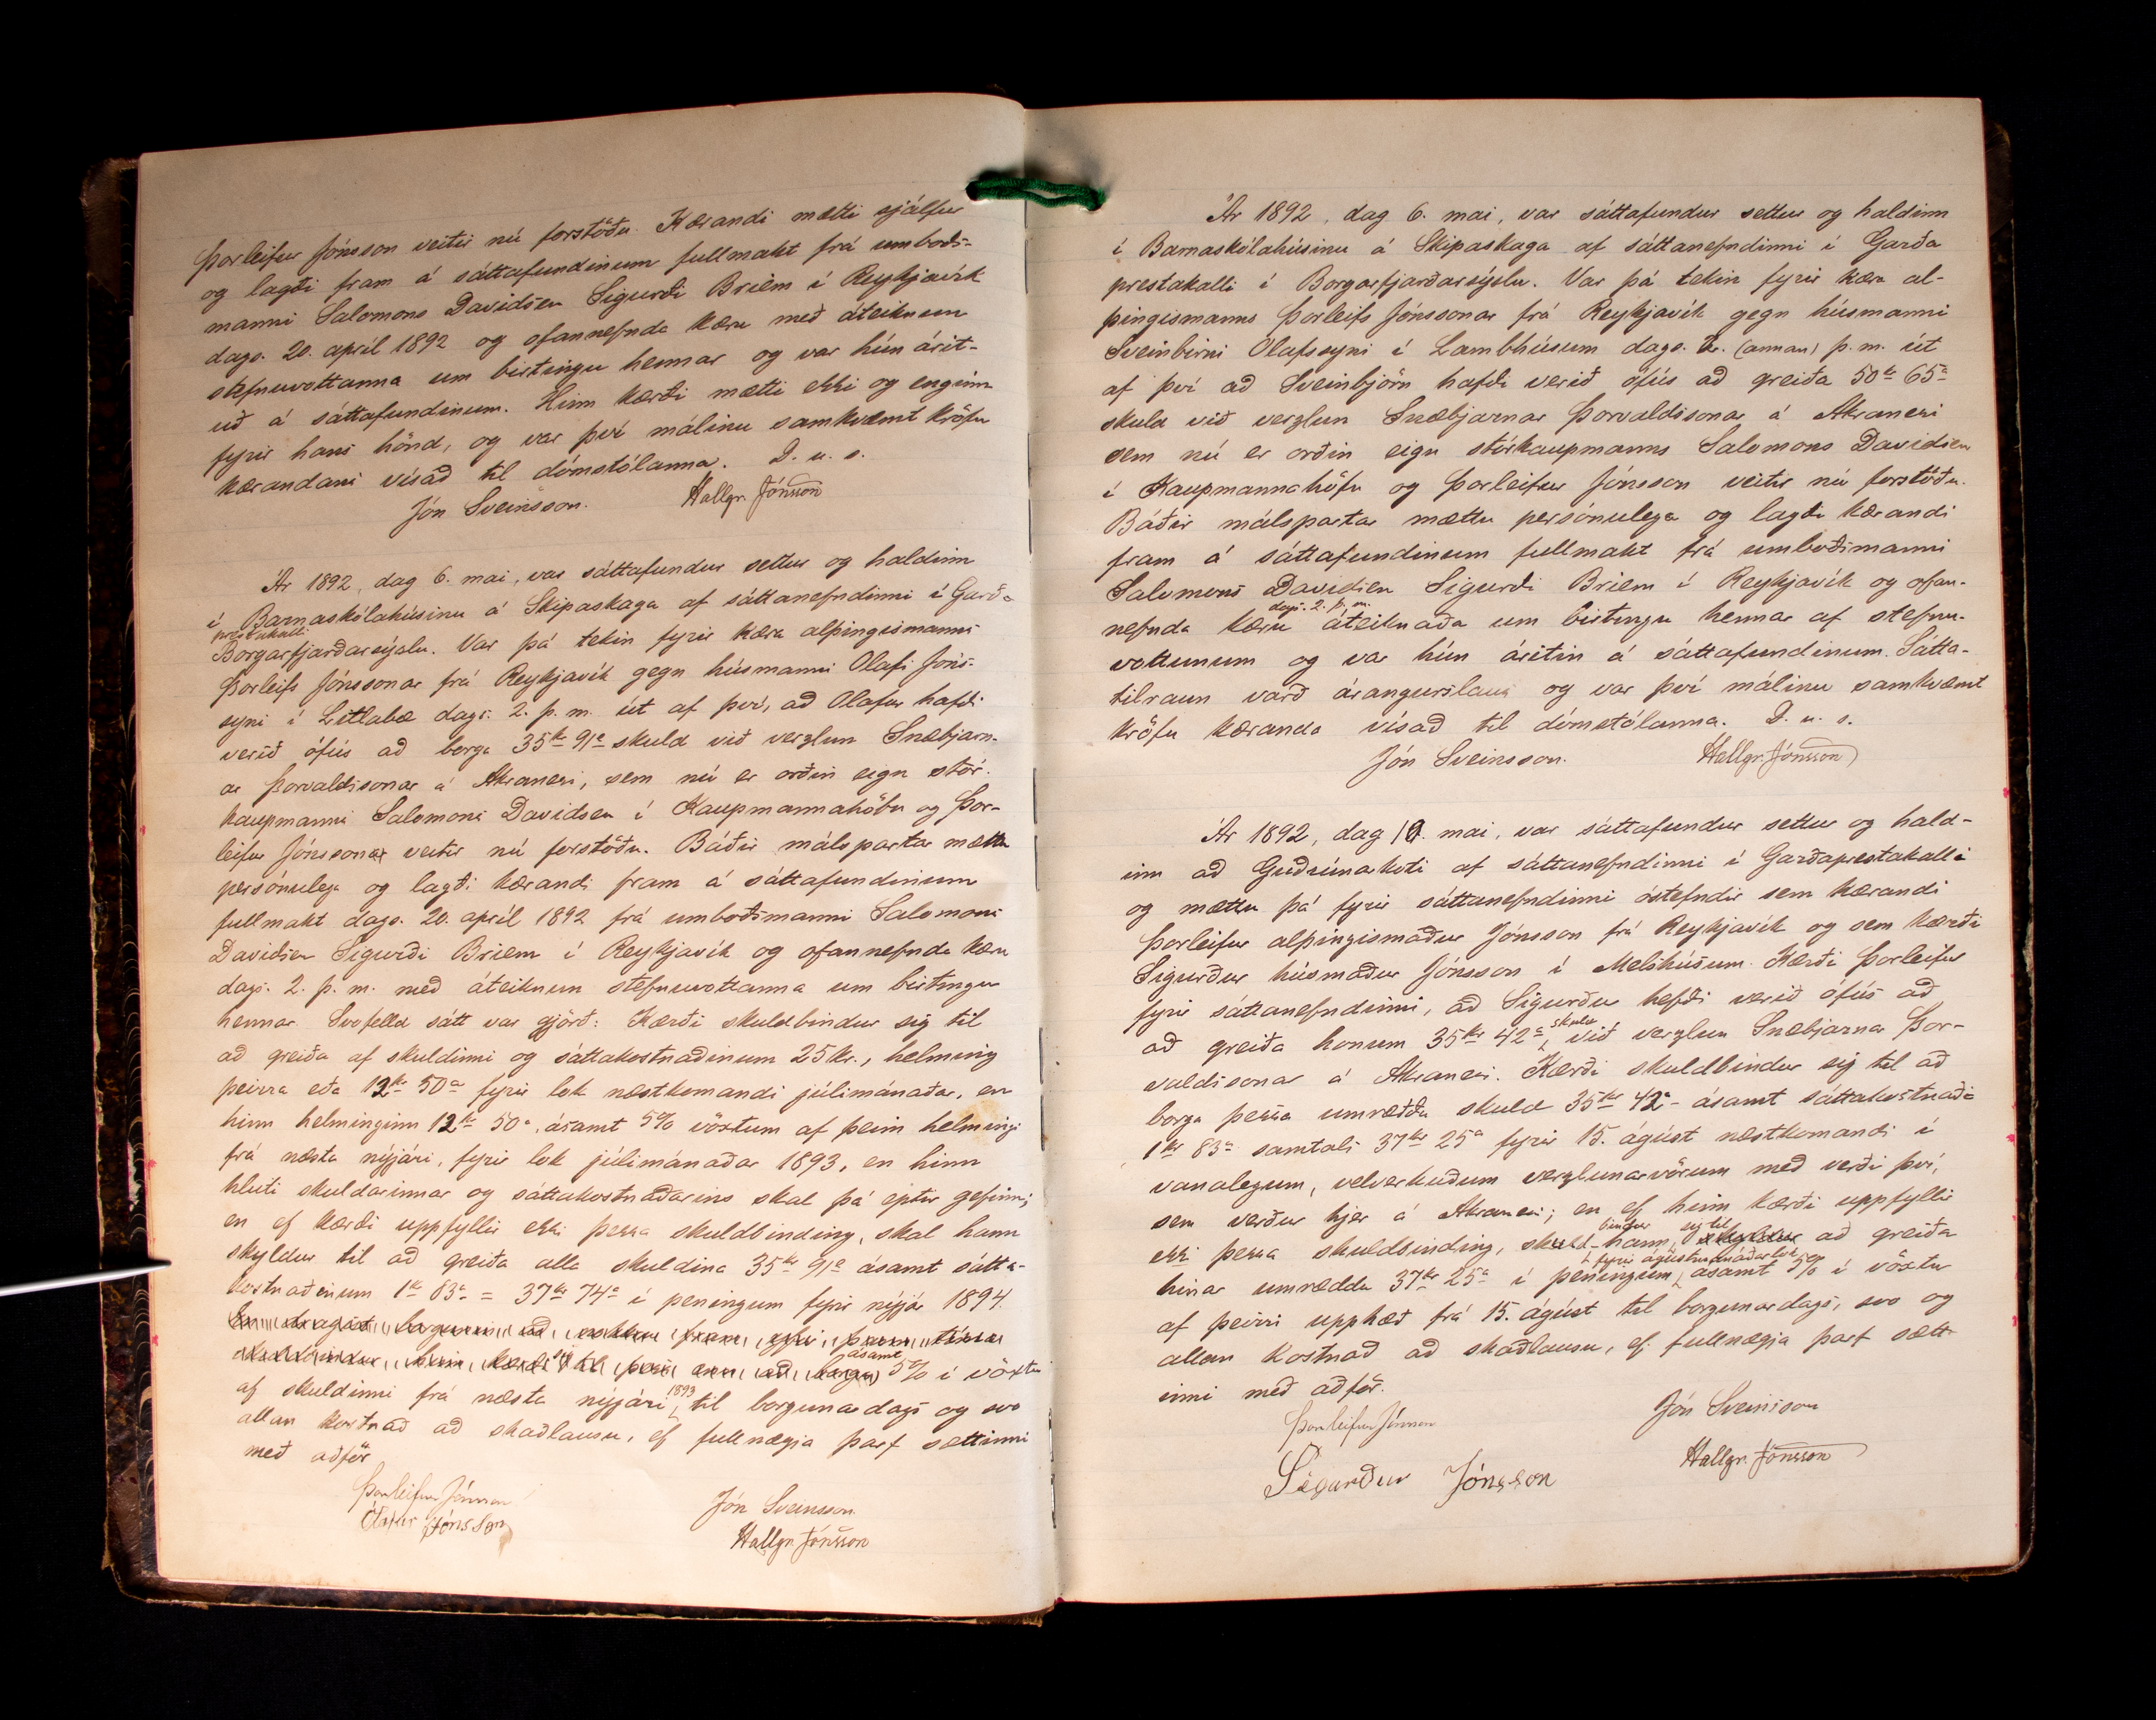 Þorleifur Jónsson veitir nú forstöðu. Kærandi mætti sjálfur
og lagði fram á sáttafundinum fullmakt frá umboðs-
manni Salomons Davidsen Sigurði Briem í Reykjavík
dags. 20. apríl 1892 og ofannefnda kæru með áteiknun
stefnuvottanna um birtingu hennar og var hún árit-
uð á sáttafundinum. Hinn kærði mætti ekki og enginn
fyrir hans hönd, og var því málinu samkvæmt kröfu
kærandans vísað til dómstólanna. D. u. s.
Jón Sveinsson. Hallgr. Jónsson
Ár 1892, dag 6. mai, var sáttafundur settur og haldinn
í Barnaskólahúsinu á Skipaskaga af sáttanefndinni í Garða
prestakalli
Borgarfjarðarsýslu. Var þá tekin fyrir kæra alþingismanns
Þorleifs Jónssonar frá Reykjavík gegn húsmanni Olafi Jóns-
syni í Litlabæ dags. 2. þ. m. út af því, að Olafur hafði
verið ófús að borga 35 kr 91 a skuld við verzlun Snæbjarn-
ar Þorvaldssonar á Akranesi, sem nú er orðin eign stór-
kaupmanns Salomons Davidsen í Kaupmannahöfn og Þor-
leifur Jónssonar veitir nú forstöðu. Báðir málspartar mættu
persónulega og lagði kærandi fram á sáttafundinum
fullmakt dags. 20. apríl 1892 frá umboðsmanni Salomons
Davidsen Sigurði Briem í Reykjavík og ofannefnda kæru
dags. 2. þ. m. með áteiknun stefnuvottanna um birtingu
hennar. Svofelld sátt var gjörð: Kærði skuldbindur sig til
að greiða af skuldinni og sáttakostnaðinum 25 kr., helming
þeirra eða 12 kr 50 a fyrir lok næstkomandi júlímánaðar, en
hinn helminginn 12 kr 50 a, ásamt 5% vöxtum af þeim helmingi
frá næsta nýjári, fyrir lok júlímánaðar 1893, en hinn
hluti skuldarinnar og sáttakostnaðarins skal þá eptir gefinn;
en ef kærði uppfyllir ekki þessa skuldbinding, skal hann
skyldur til að greiða alla skuldina 35 kr 91 a ásamt sátta-
kostnaðinum 1 kr 83 a = 37 kr 74 a í peningum fyrir nýjár 1894.
ásamt
5% í vöxtu
af skuldinni frá næsta nýjári 1893 til borgunardags og svo
allan kostnað að skaðlausu, ef fullnægja þarf sættinni
með aðför
Þorleifur Jónsson Jón Sveinsson
Ólafur Jónsson Hallgr. Jónsson
Ár 1892, dag 6. mai, var sáttafundur settur og haldinn
í Barnaskólahúsinu á Skipaskaga af sáttanefndinni í Garða
prestakalli í Borgarfjarðarsýslu. Var þá tekin fyrir kæra al-
þingismanns Þorleifs Jónssonar frá Reykjavík gegn húsmanni
Sveinbirni Olafssyni í Lambhúsum dags. 2. (annan) þ. m. út
af því að Sveinbjörn hafði verið ófús að greiða 50 kr 65 a
skuld við verzlun Snæbjarnar Þorvaldssonar á Akranesi
sem nú er orðin eign stórkaupmanns Salomons Davidsen
í Kaupmannahöfn og Þorleifur Jónsson veitir nú forstöðu.
Báðir málspartar mættu persónulega og lagði kærandi
fram á sáttafundinum fullmakt frá umboðsmanni
Salomons Davidsen Sigurði Briem í Reykjavík og ofan-
dags. 2. þ. m.
nefnda kæru áteiknaða um birtingu hennar af stefnu-
vottunum og var hún áritin á sáttafundinum. Sátta-
tilraun varð árangurslaus og var því málinu samkvæmt
kröfu kæranda vísað til dómstólanna. D. u. s.
Jón Sveinsson. Hallgr. Jónsson
Ár 1892, dag 10. mai, var sáttafundur settur og hald-
inn að Guðrúnarkoti af sáttanefndinni í Garðaprestakalli
og mættu þá fyrir sáttanefndinni óstefndir sem kærandi
Þorleifur alþingismaður Jónsson frá Reykjavík og sem kærði
Sigurður húsmaður Jónsson í Melshúsum. Kærði Þorleifur
fyrir sáttanefndinni, að Sigurður hefði verið ófús að
að greiða honum 35 kr 42 a skuld við verzlun Snæbjarnar Þor-
valdssonar á Akranesi. Kærði skuldbindur sig til að
borga þessa umræddu skuld 35 kr 42 a ásamt sáttakostnaði
1 kr 83 a samtals 37 kr 25 a fyrir 15. ágúst næstkomandi í
vanalegum, velverkuðum verzlunarvörum með verði því,
sem verður hjer á Akranesi; en ef hinn kærði uppfyllir
bindur sig til
ekki þessa skuldbinding, skuld- hann, skyldur að greiða
fyrir ágústmánaðarlok
hinar umræddu 37 kr 25 a í peningum, ásamt 5% í vöxtu
af þeirri upphæð frá 15. ágúst til borgunardags, svo og
allan kostnað að skaðlausu, ef fullnægja þarf sætt-
inni með aðför.
Þorleifur Jónsson Jón Sveinsson
Sigurður Jónsson Hallgr. Jónsson